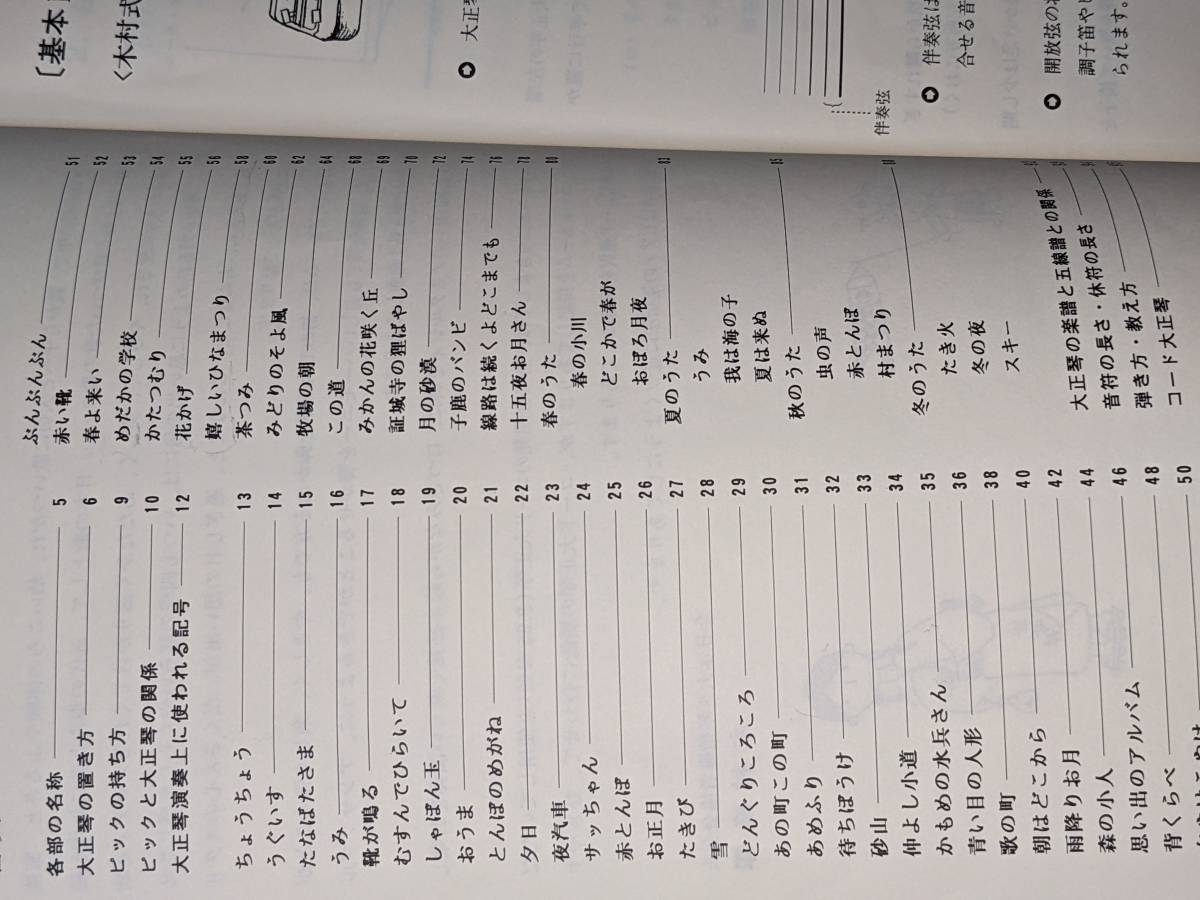 各部の名称 5
大正琴の置き方 6
ピックの持ち方 9
ピックと大正琴の関係 10
大正琴演奏上に使われる記号 12
ちょうちょう 13
うぐいす 14
たなばたさま 15
うみ 16
靴が鳴る 17
むすんでひらいて 18
しゃぼん玉 19
おうま 20
とんぼのめがね 21
夕日 22
夜汽車 23
サッちゃん 24
赤とんぼ 25
お正月 26
たきび 27
雪 28
どんぐりころころ 29
あの町この町 30
あめふり 31
待ちぼうけ 32
砂山 33
仲よし小道 34
かもめの水兵さん 35
青い目の人形 36
歌の町 38
朝はどこから 40
雨降りお月 42
森の小人 44
思い出のアルバム 46
背くらべ 48
50
ぶんぶんぶん 51
赤い靴 52
春よ来い 53
めだかの学校 54
かたつむり 55
花かげ 56
嬉しいひなまつり 58
茶つみ 60
みどりのそよ風 62
牧場の朝 64
この道 68
みかんの花咲く丘 69
証城寺の狸ばやし 70
月の砂漠 72
子鹿のバンビ 74
線路は続くよどこまでも 76
十五夜お月さん 78
春のうた 80
春の小川
どこかで春が
おぼろ月夜
夏のうた 83
うみ
我は海の子
夏は来ぬ
秋のうた 85
虫の声
赤とんぼ
村まつり
冬のうた
たき火
冬の夜
スキー
大正琴の楽譜と五線譜との関係
音符の長さ・休符の長さ
弾き方・教え方
コード大正琴
〔基本
〈木村式
大正琴
伴奏弦
伴奏弦は
合せる音
開放弦の
調子笛や
られます。